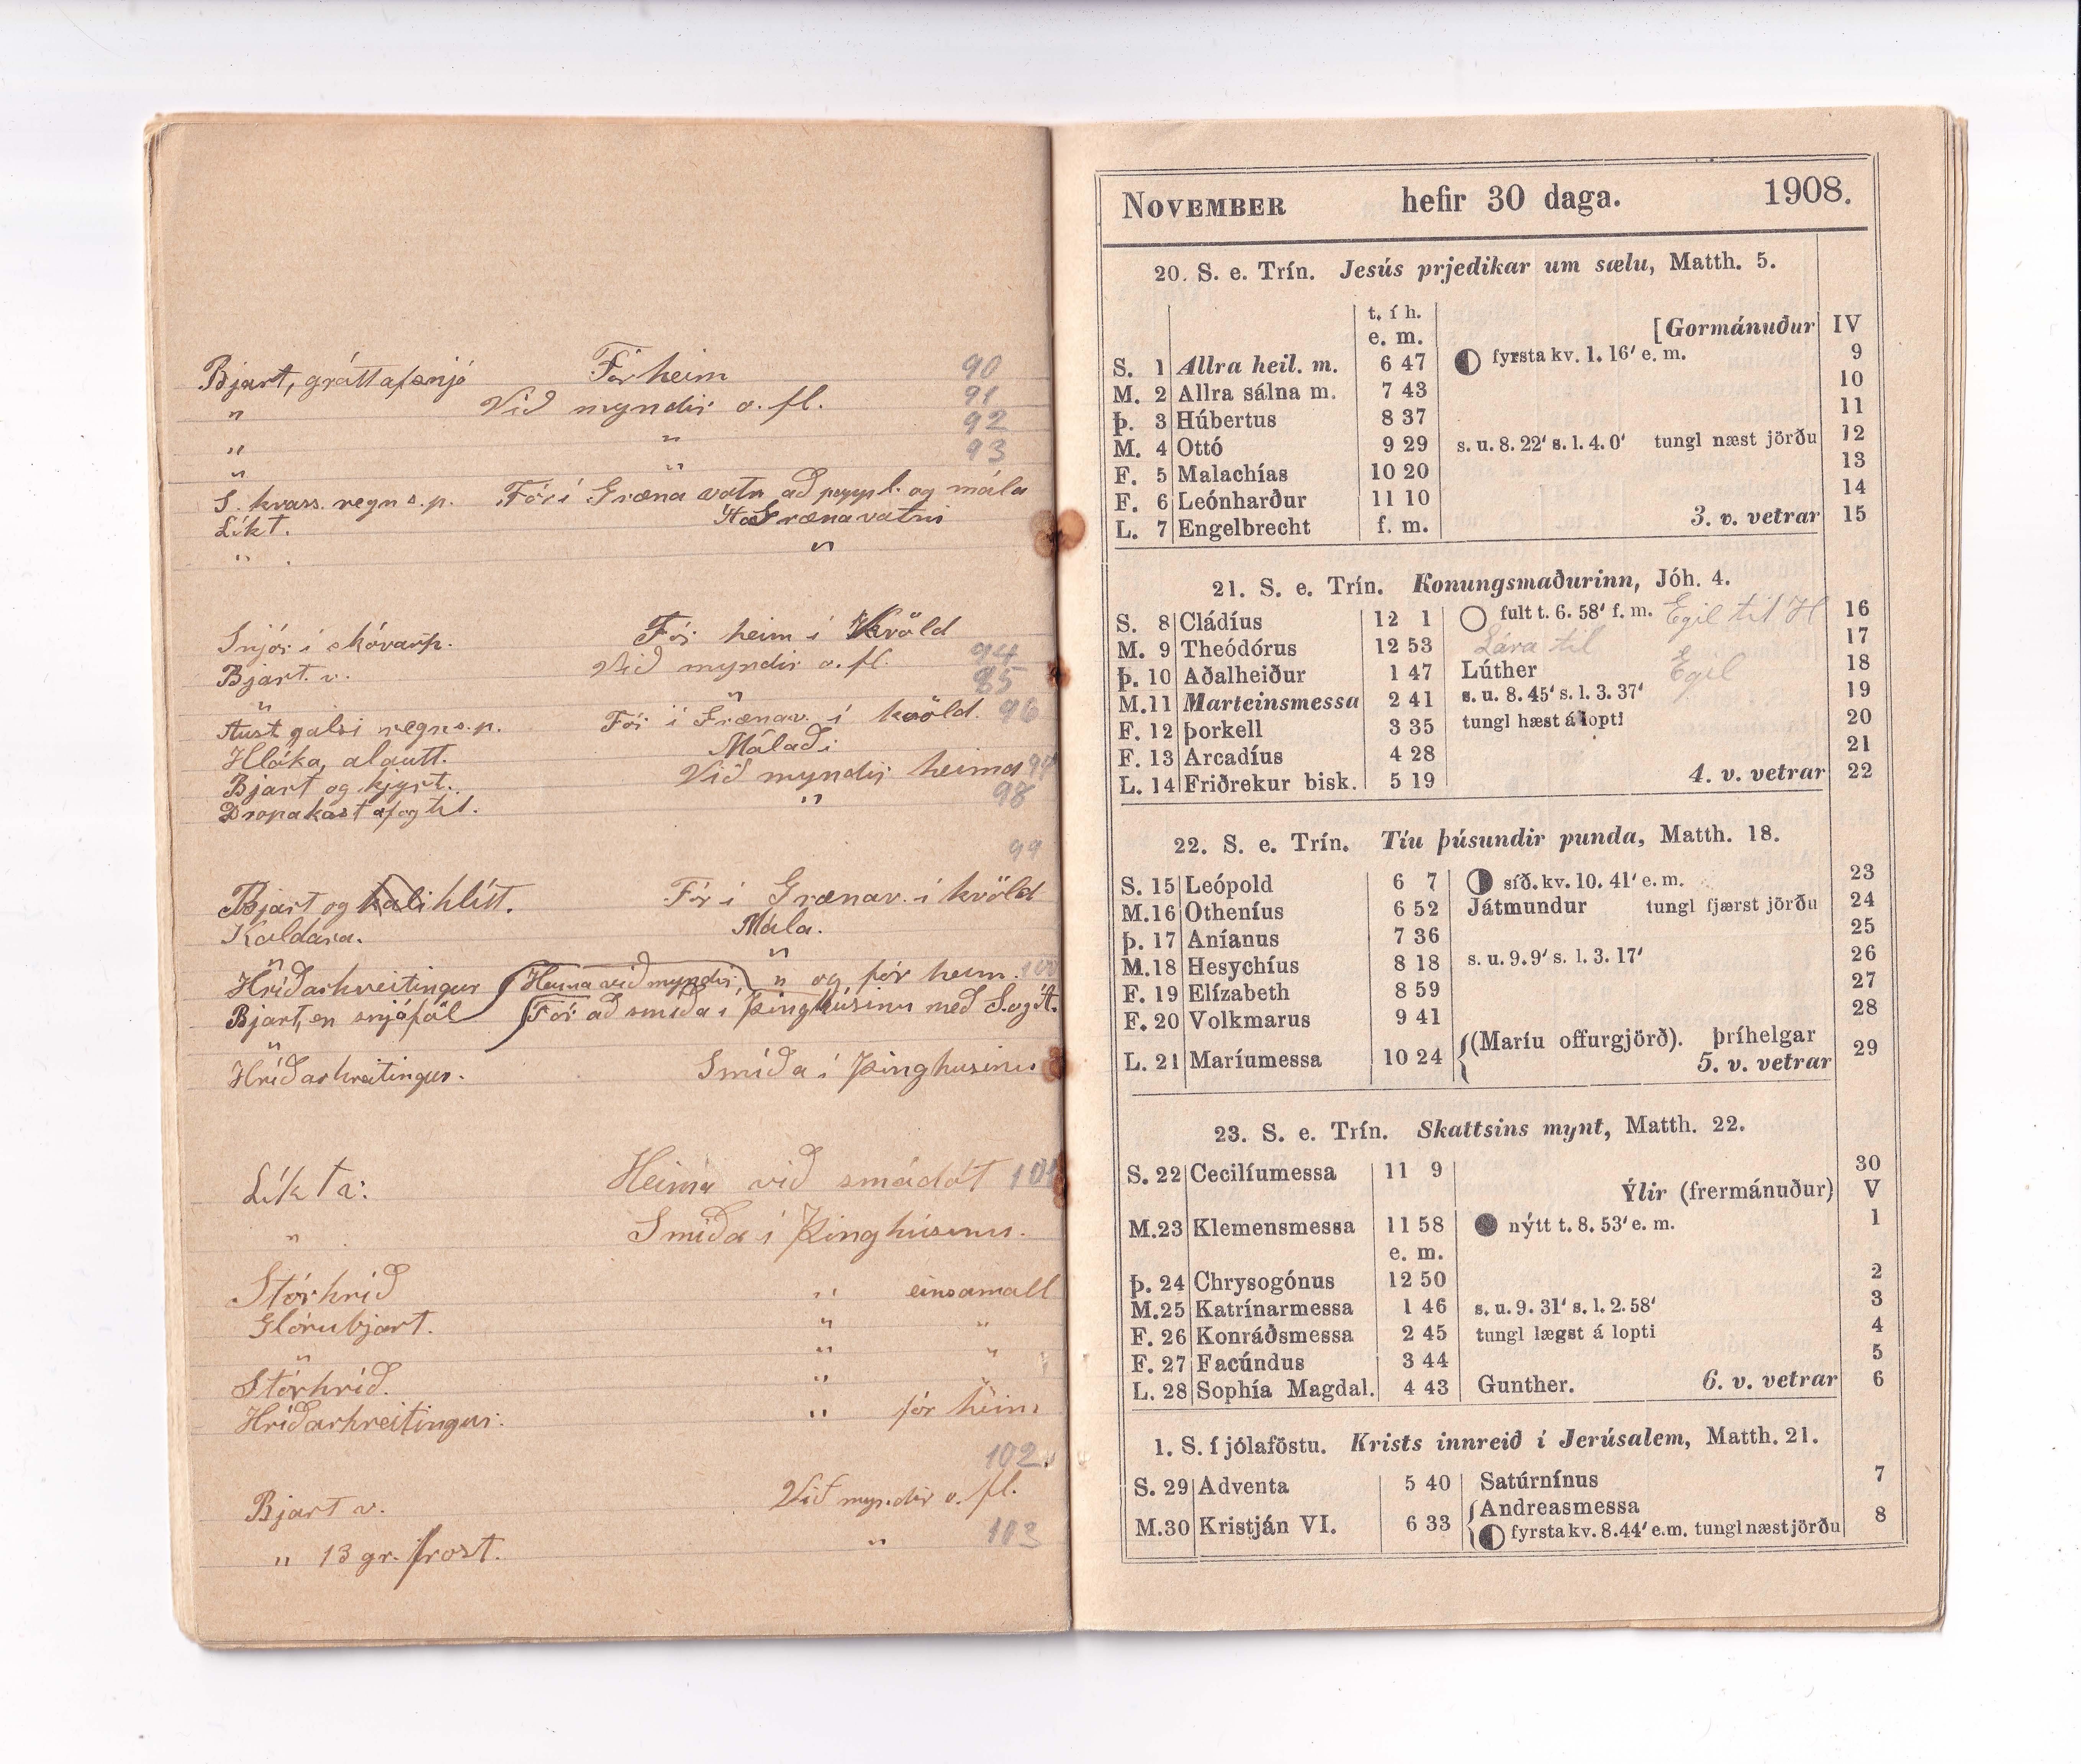 Bjart, gráttafsnjó Fór heim 90
" Við myndir o. fl. 91
" " 92
" " 93
S. kvass. regn s.p. Fór í Græna vatn að og mála
Líkt. Grænavatni
" "
Snjór í skóvarp. Fór heim í kvöld
Bjart. v. Við myndir o. fl. 94
" " 85
Aust galsi regn s.p. Fór í Grænav. í kvöld. 96
Hláka, alautt. Málaði
Bjart og kjyrt. Við myndir heima 97
Dropakast af og til. " 98
99
Bjart og kali hlítt. Fór í Grænav. í kvöld
Kaldara. Mála.
" "
Hríðarhreitingur Heima við myndir " og fór heim. 100
Bjart, en snjóföl Fór að smíða í Þinghúsinu með
"
Hríðarhreitingur. Smíða í Þinghusinu
Líkt a: Heima við smádót 101
" Smíða í Þinghúsinu.
Stórhríð " einsamall
Glórubjart. " "
" " "
Stórhríð. "
Hríðarhreitingur. " fór heim
102.
Bjart v. Við myndir o. fl.
" 13 gr. frost. " 103
NOVEMBER hefir 30 daga. 1908.
20. S. e. Trín. Jesús prjedikar um sælu, Matth. 5.
t. í h.
e. m. [Gormánuður IV
S. 1 Allra heil. m. 6 47 fyrsta kv. 1. 16' e. m. 9
M. 2 Allra sálna m. 7 43 10
Þ. 3 Húbertus 8 37 11
M. 4 Ottó 9 29 s. u. 8. 22' s. l. 4. 0' tungl næst jörðu 12
F. 5 Malachías 10 20 13
F. 6 Leónharður 11 10 14
L. 7 Engelbrecht f. m. 3. v. vetrar 15
21. S. e. Trín. Konungsmaðurinn, Jóh. 4.
S. 8 Cládíus 12 1 fult t. 6. 58' f. m. Egil til H 16
M. 9 Theódórus 12 53 Lára til 17
Þ. 10 Aðalheiður 1 47 Lúther Egil 18
M. 11 Marteinsmessa 2 41 s. u. 8. 45' s. l. 3. 37' 19
F. 12 Þorkell 3 35 tungl hæst á lopti 20
F. 13 Arcadíus 4 28 21
L. 14 Friðrekur bisk. 5 19 4. v. vetrar 22
22. S. e. Trín. Tíu þúsundir punda, Matth. 18.
S. 15 Leópold 6 7 síð. kv. 10. 41' e. m. 23
M. 16 Otheníus 6 52 Játmundur tungl fjærst jörðu 24
Þ. 17 Aníanus 7 36 25
M. 18 Hesychíus 8 18 s. u. 9. 9' s. l. 3. 17' 26
F. 19 Elízabeth 8 59 27
F. 20 Volkmarus 9 41 28
L. 21 Maríumessa 10 24 (Maríu offurgjörð). Þríhelgar 29
5. v. vetrar
23. S. e. Trín. Skattsins mynt, Matth. 22.
S. 22 Cecilíumessa 11 9 30
Ýlir (frermánuður) V
M. 23 Klemensmessa 11 58 nýtt t. 8. 53' e. m. 1
e. m.
Þ. 24 Chrysogónus 12 50 2
M. 25 Katrínarmessa 1 46 s. u. 9. 31' s. l. 2. 58' 3
F. 26 Konráðsmessa 2 45 tungl lægst á lopti 4
F. 27 Facúndus 3 44 5
L. 28 Sophía Magdal. 4 43 Gunther. 6. v. vetrar 6
1. S. í jólaföstu. Krists innreið í Jerúsalem, Matth. 21.
S. 29 Adventa 5 40 Satúrnínus 7
Andreasmessa
M. 30 Kristján VI. 6 33 fyrsta kv. 8. 44' e. m. tungl næst jörðu 8